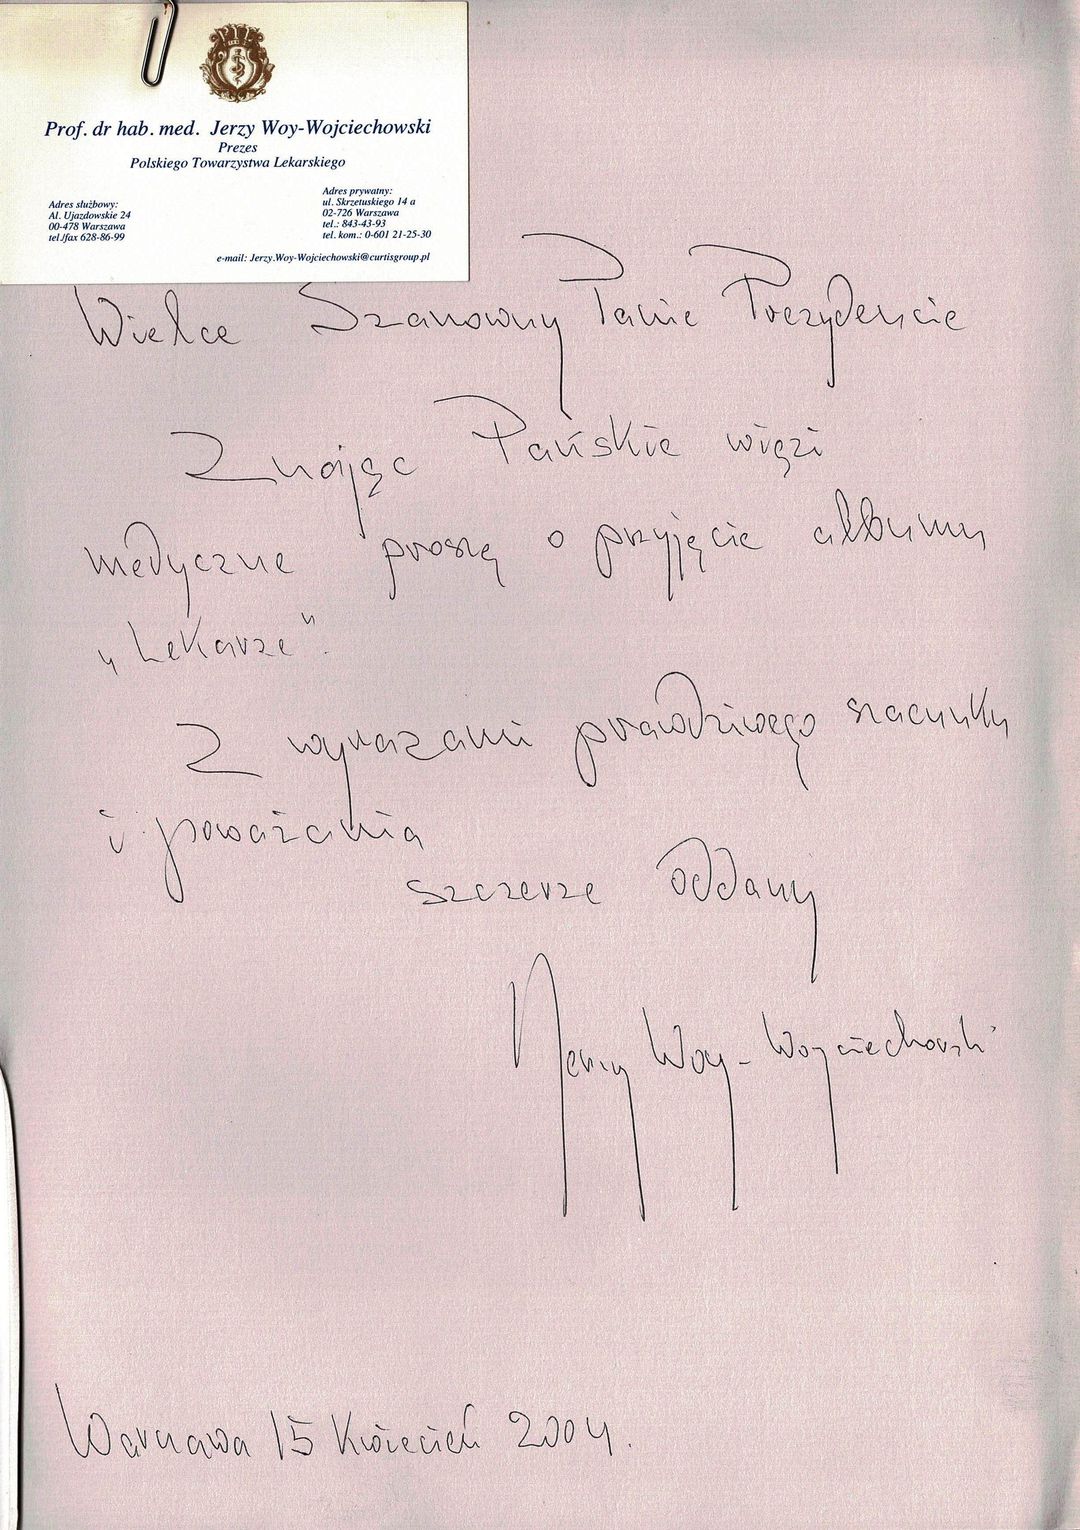 Prof. dr hab. med. Jerzy Woy-Wojciechowski
Prezes
Polskiego Towarzystwa Lekarskiego
Adres służbowy:
Al. Ujazdowskie 24
00-478 Warszawa
tel./fax 628-86-99
Adres prywatny:
ul. Skrzetuskiego 14 a
02-726 Warszawa
tel.: 843-43-93
tel. kom.: 0-601 21-25-30
e-mail: Jerzy.Woy-Wojciechowski@curtisgroup.pl
Wielce Szanowny Panie Prezydencie
Znając Pańskie więzi
medyczne proszę o przyjęcie albumu
„Lekarze”.
Z wyrazami prawdziwego szacunku
i poważania
szczerze oddany
Jerzy Woy-Wojciechowski
Warszawa 15 Kwiecień 2004.